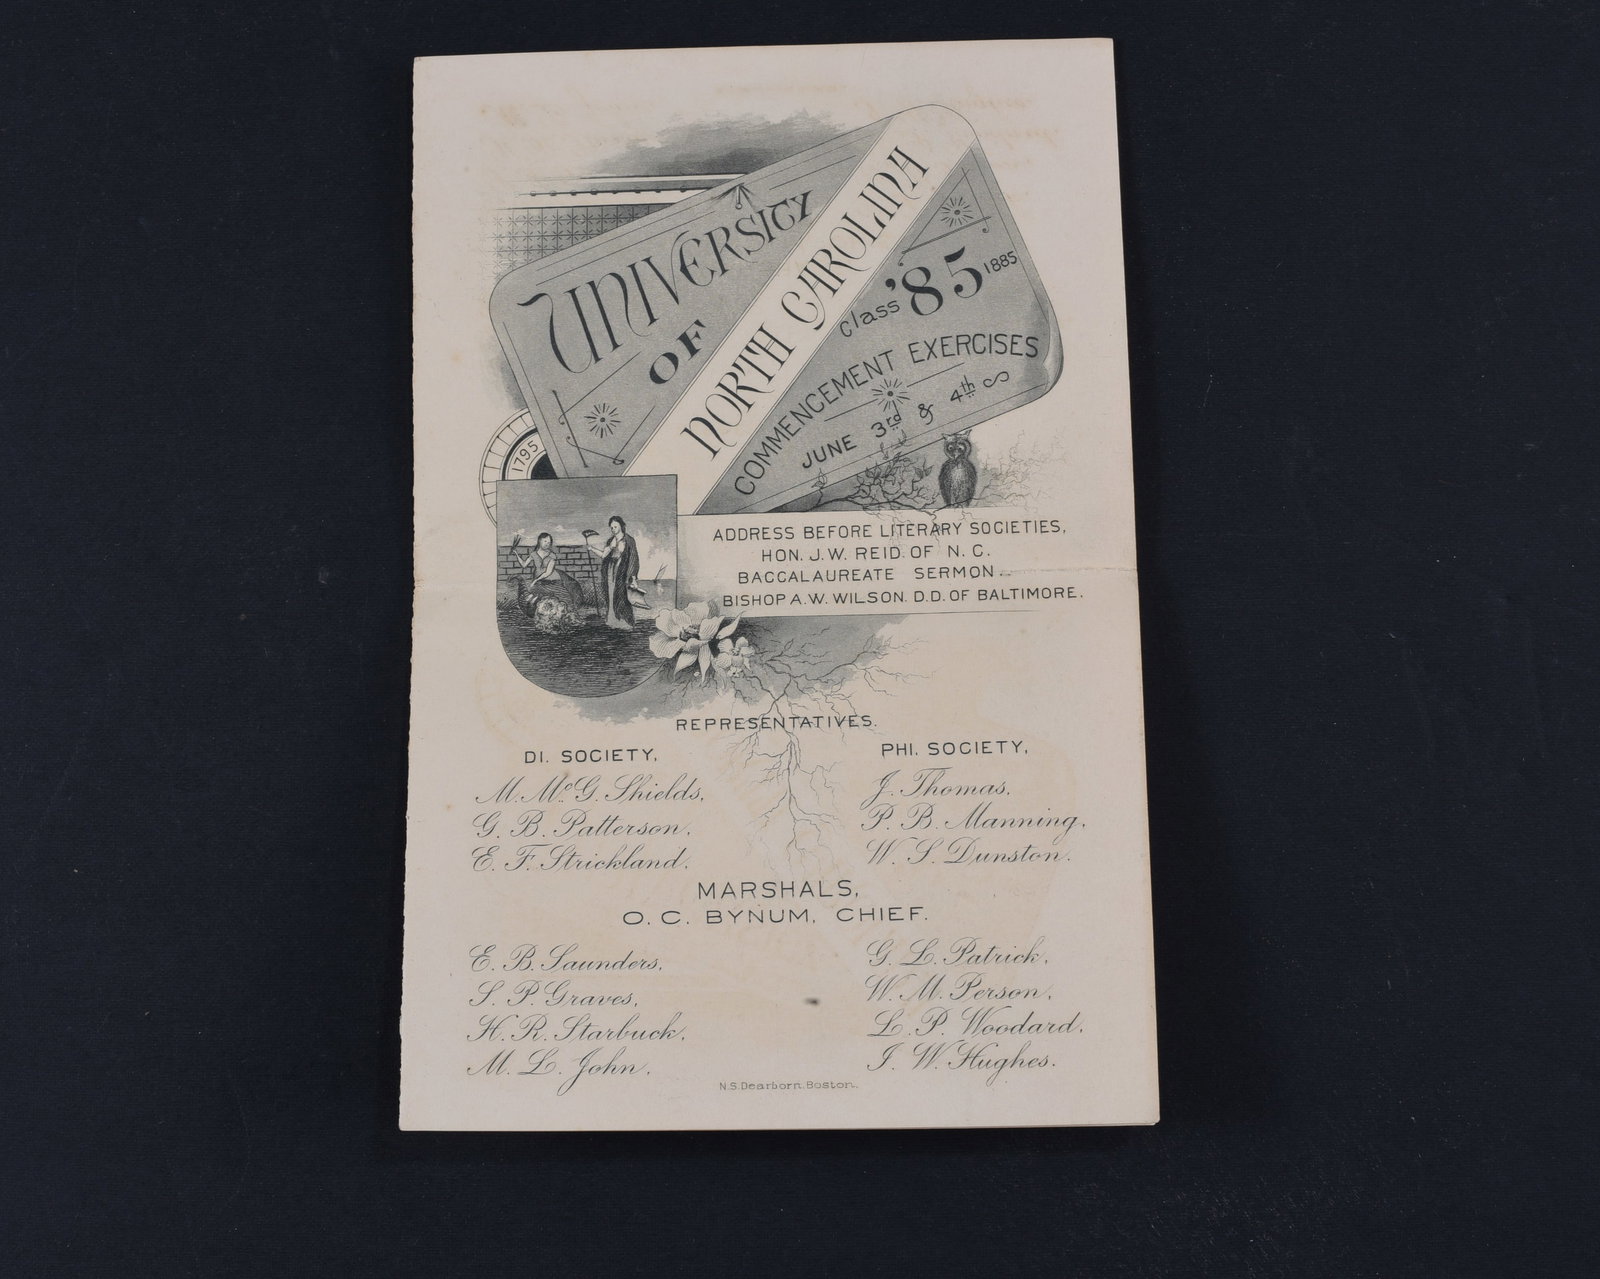 UNIVERSITY
OF
NORTH CAROLINA
Class '85 1885
COMMENCEMENT EXERCISES
JUNE 3rd & 4th
1795
ADDRESS BEFORE LITERARY SOCIETIES,
HON. J. W. REID OF N. C.
BACCALAUREATE SERMON
BISHOP A. W. WILSON. D.D. OF BALTIMORE.
REPRESENTATIVES.
DI. SOCIETY,
M. McG. Shields,
G. B. Patterson,
E. F. Strickland.
PHI. SOCIETY,
J. Thomas,
P. B. Manning,
W. S. Dunston.
MARSHALS,
O. C. BYNUM, CHIEF.
E. B. Saunders,
S. P. Graves,
H. R. Starbuck,
M. L. John,
G. L. Patrick,
W. M. Person,
L. P. Woodard,
J. W. Hughes.
N.S. Dearborn. Boston.